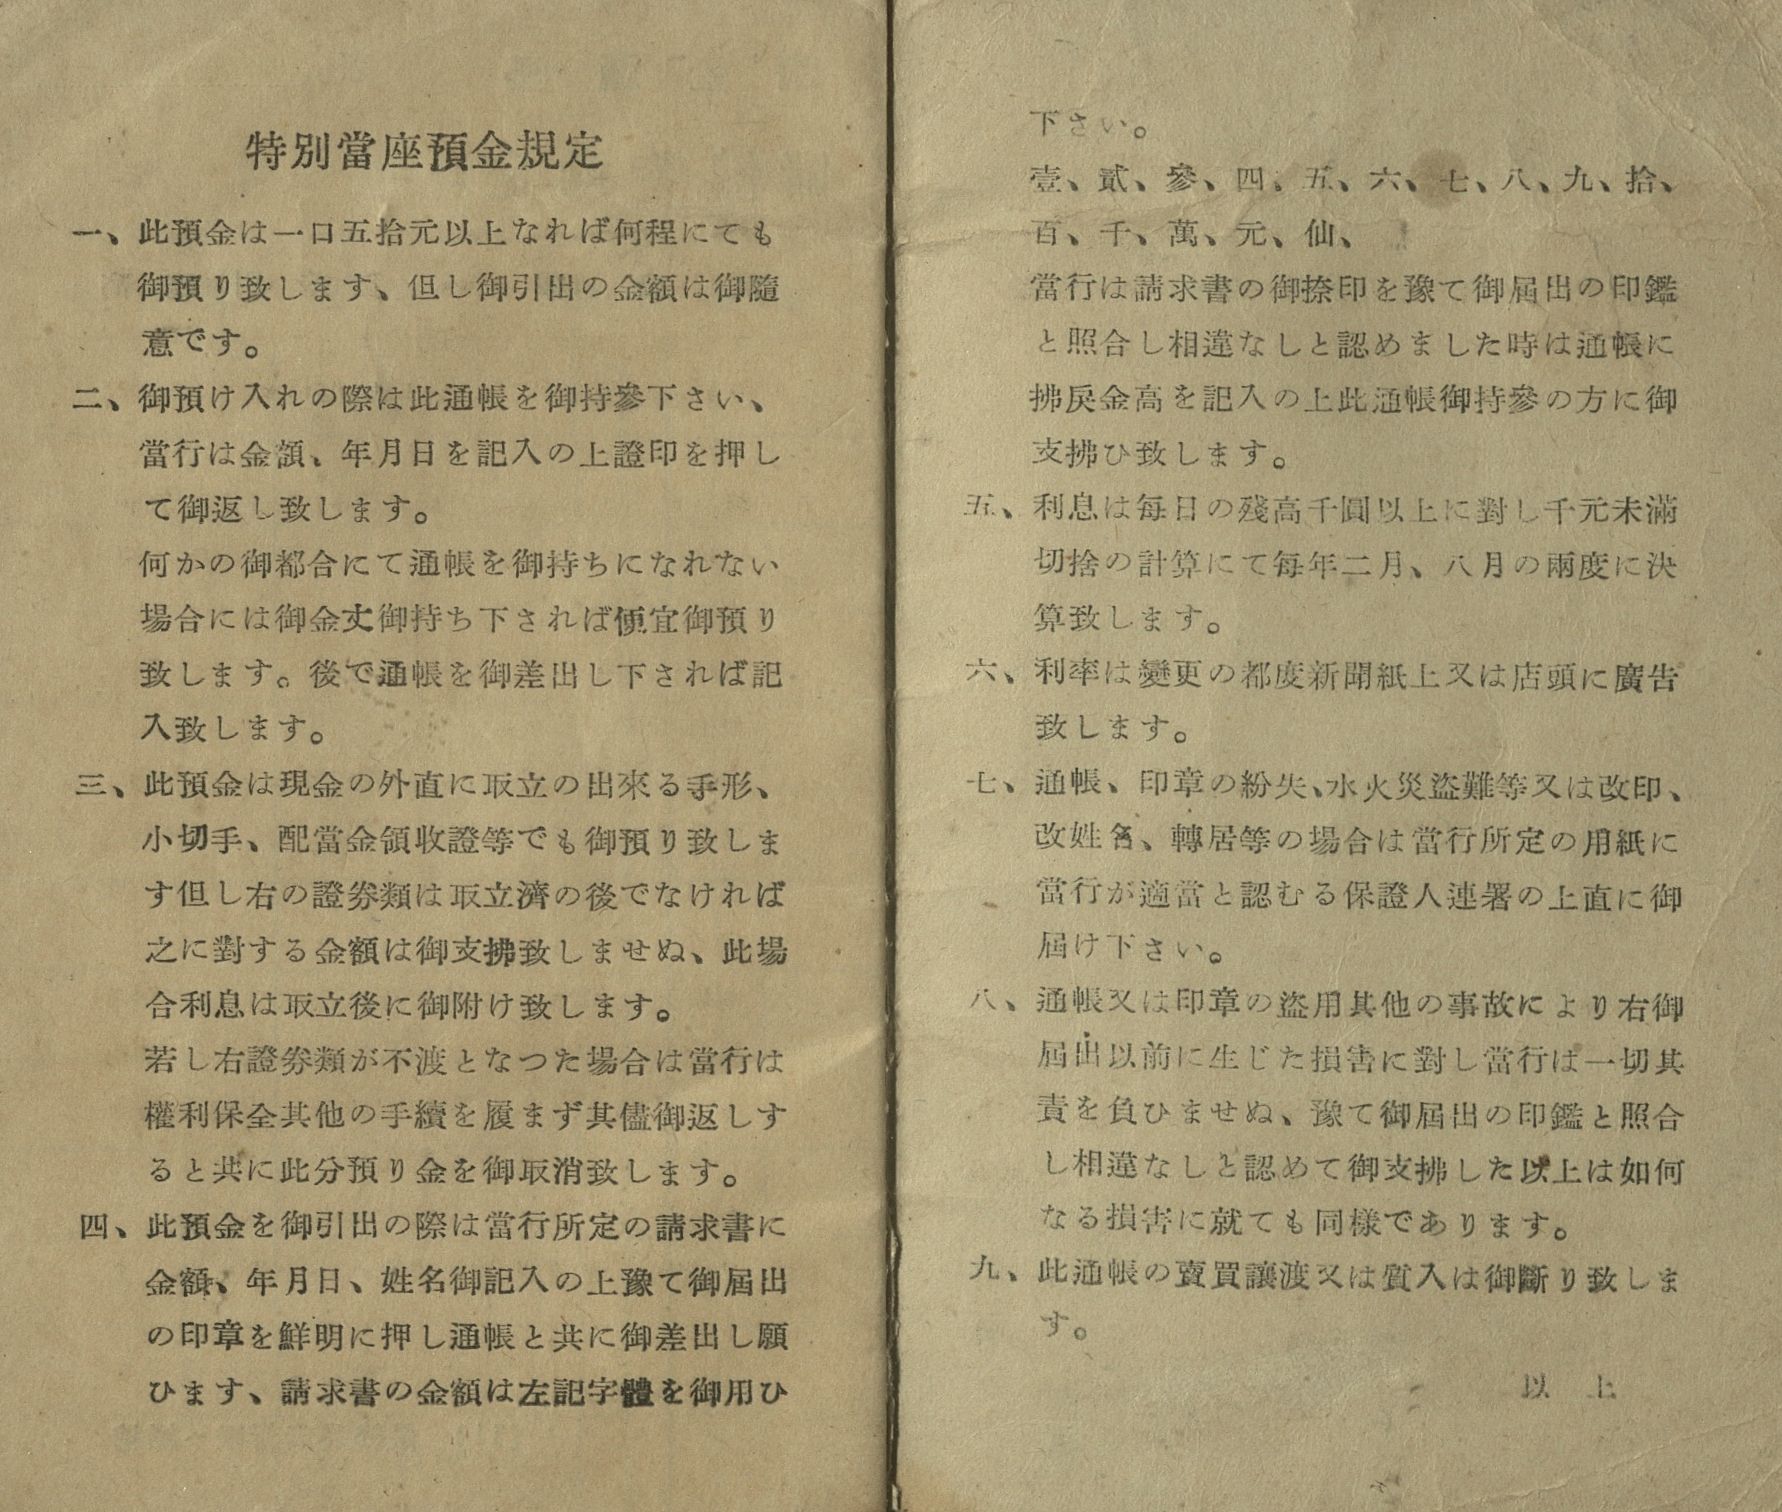 特別當座預金規定
一、此預金は一口五拾元以上なれば何程にても
御預り致します、但し御引出の金額は御隨
意です。
二、御預け入れの際は此通帳を御持參下さい、
當行は金額、年月日を記入の上證印を押し
て御返し致します。
何かの御都合にて通帳を御持ちになれない
場合には御金丈御持ち下されば便宜御預り
致します。後で通帳を御差出し下されば記
入致します。
三、此預金は現金の外直に取立の出來る手形、
小切手、配當金領收證等でも御預り致しま
す但し右の證券類は取立濟の後でなければ
之に對する金額は御支拂致しませぬ、此場
合利息は取立後に御附け致します。
若し右證券類が不渡となつた場合は當行は
權利保全其他の手續を履まず其儘御返しす
ると共に此分預り金を御取消致します。
四、此預金を御引出の際は當行所定の請求書に
金額、年月日、姓名御記入の上豫て御屆出
の印章を鮮明に押し通帳と共に御差出し願
ひます、請求書の金額は左記字體を御用ひ
下さい。
壹、貳、參、四、五、六、七、八、九、拾、
百、千、萬、元、仙、
當行は請求書の御捺印を豫て御屆出の印鑑
と照合し相違なしと認めました時は通帳に
拂戾金高を記入の上此通帳御持參の方に御
支拂ひ致します。
五、利息は每日の殘高千圓以上に對し千元未滿
切捨の計算にて每年二月、八月の兩度に決
算致します。
六、利率は變更の都度新聞紙上又は店頭に廣告
致します。
七、通帳、印章の紛失、水火災盜難等又は改印、
改姓名、轉居等の場合は當行所定の用紙に
當行が適當と認むる保證人連署の上直に御
屆け下さい。
八、通帳又は印章の盜用其他の事故により右御
屆出以前に生じた損害に對し當行は一切其
責を負ひませぬ、豫て御屆出の印鑑と照合
し相違なしと認めて御支拂した以上は如何
なる損害に就ても同樣であります。
九、此通帳の賣買讓渡又は質入は御斷り致しま
す。
以上